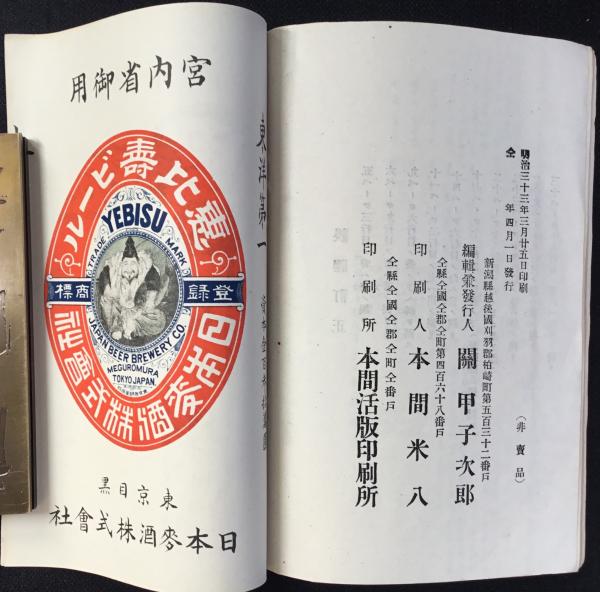 明治三十三年三月廿五日印刷
仝 年四月一日發行
（非賣品）
新潟縣越後國刈羽郡柏崎町第五百三十二番戶
編輯兼發行人 關甲子次郎
仝縣仝國仝郡仝町第四百六十八番戶
印刷人 本間米八
仝縣仝國仝郡仝町仝番戶
印刷所 本間活版印刷所
東洋第一
宮内省御用
恵比壽ビール
YEBISU
TRADE MARK
登録
商標
JAPAN BEER BREWERY CO.
MEGUROMURA
TOKYO JAPAN.
日本麥酒株式会社
東京目黒
日本麥酒株式會社